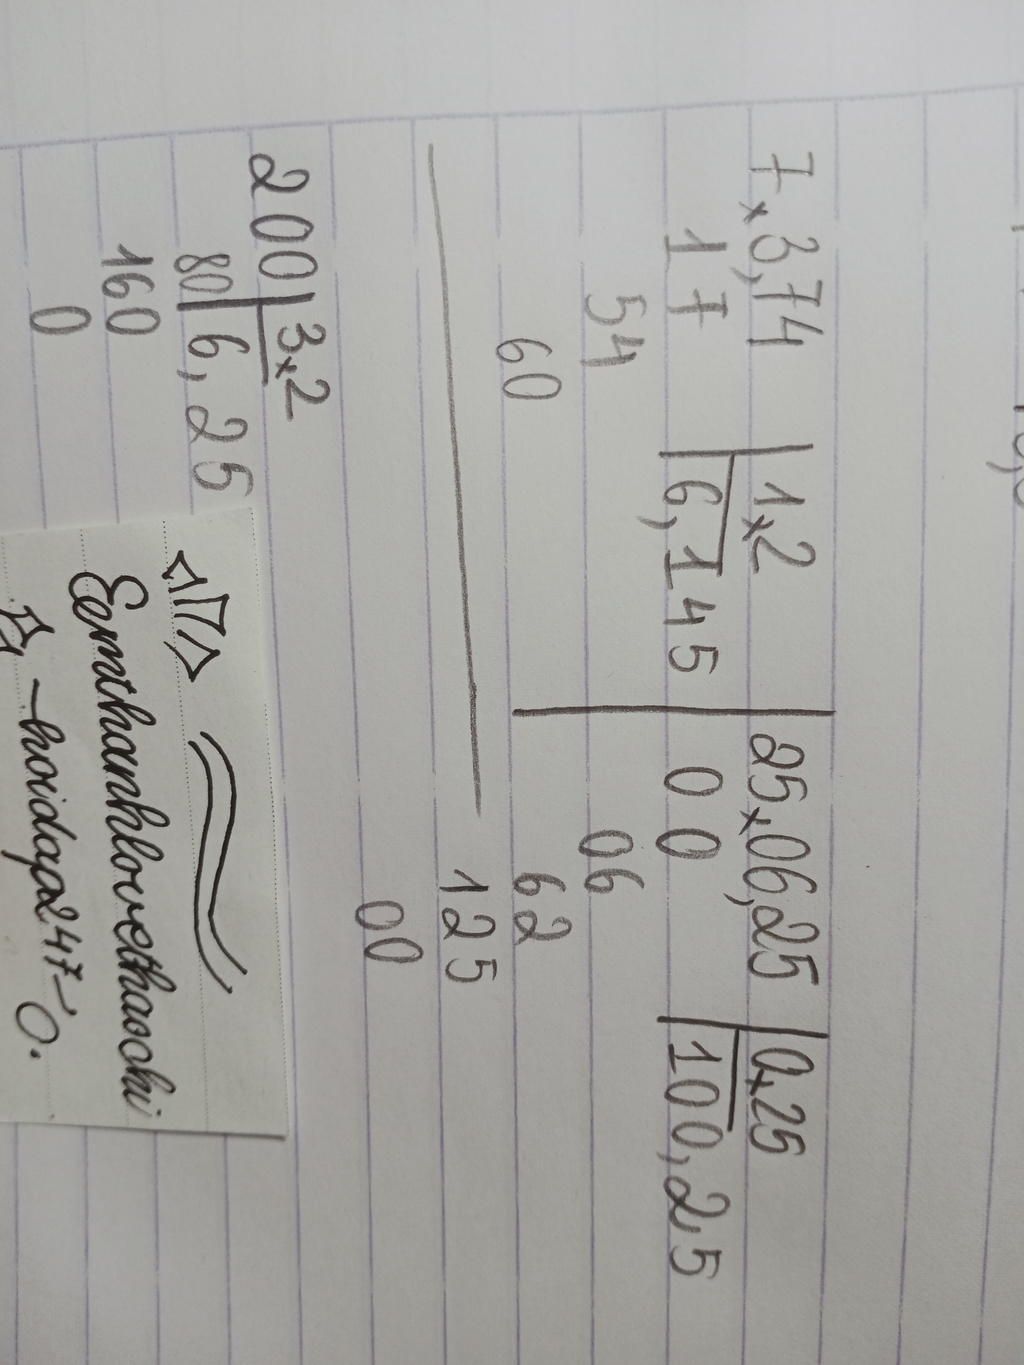 7×3,74 | 1×2
17 | 6,145
54
60
25×06,25 | 0×25
00 | 100,25
06
62
125
00
200 | 3×2
80 | 6,25
160
0
Eemthanhlovethaochi
hoidap247